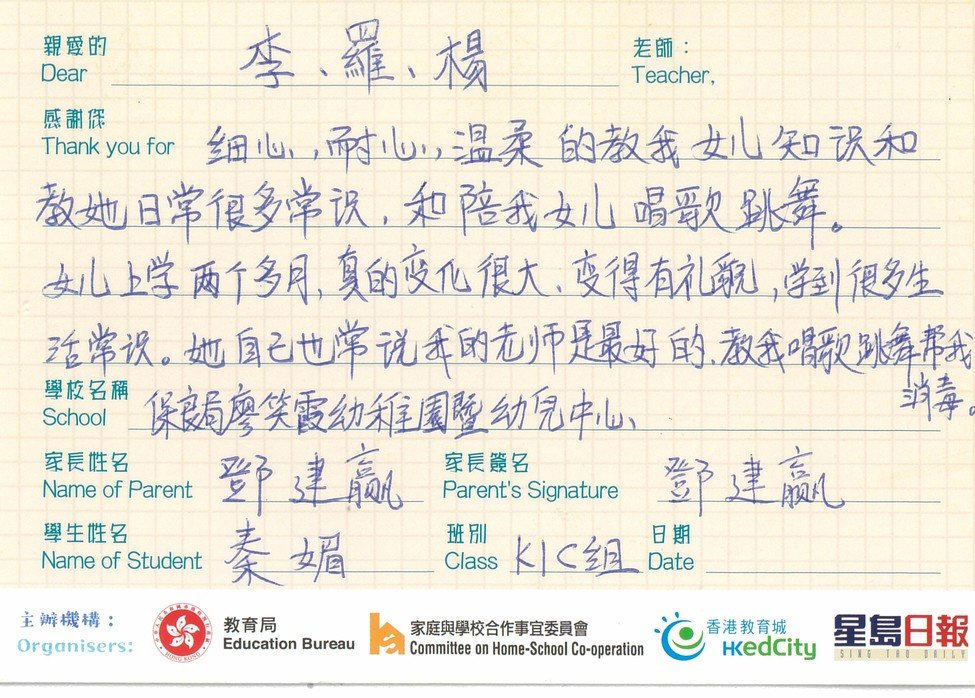 親愛的 李、羅、楊 老師：
Dear Teacher,
感謝您
Thank you for 细心,耐心,温柔的教我女儿知识和
教她日常很多常识,和陪我女儿唱歌跳舞。
女儿上学两个多月,真的变化很大、变得有礼貌,学到很多生
活常识。她自己也常说我的老师是最好的、教我唱歌跳舞帮我
消毒。
學校名稱
School 保良局廖笑霞幼稚園暨幼兒中心、
家長姓名 家長簽名
Name of Parent 鄧建贏 Parent's Signature 鄧建贏
學生姓名 班別 日期
Name of Student 秦媚 Class K1C組 Date
主辦機構：
Organisers:
教育局
Education Bureau
家庭與學校合作事宜委員會
Committee on Home-School Co-operation
香港教育城
HKedCity
星島日報
SING TAO DAILY